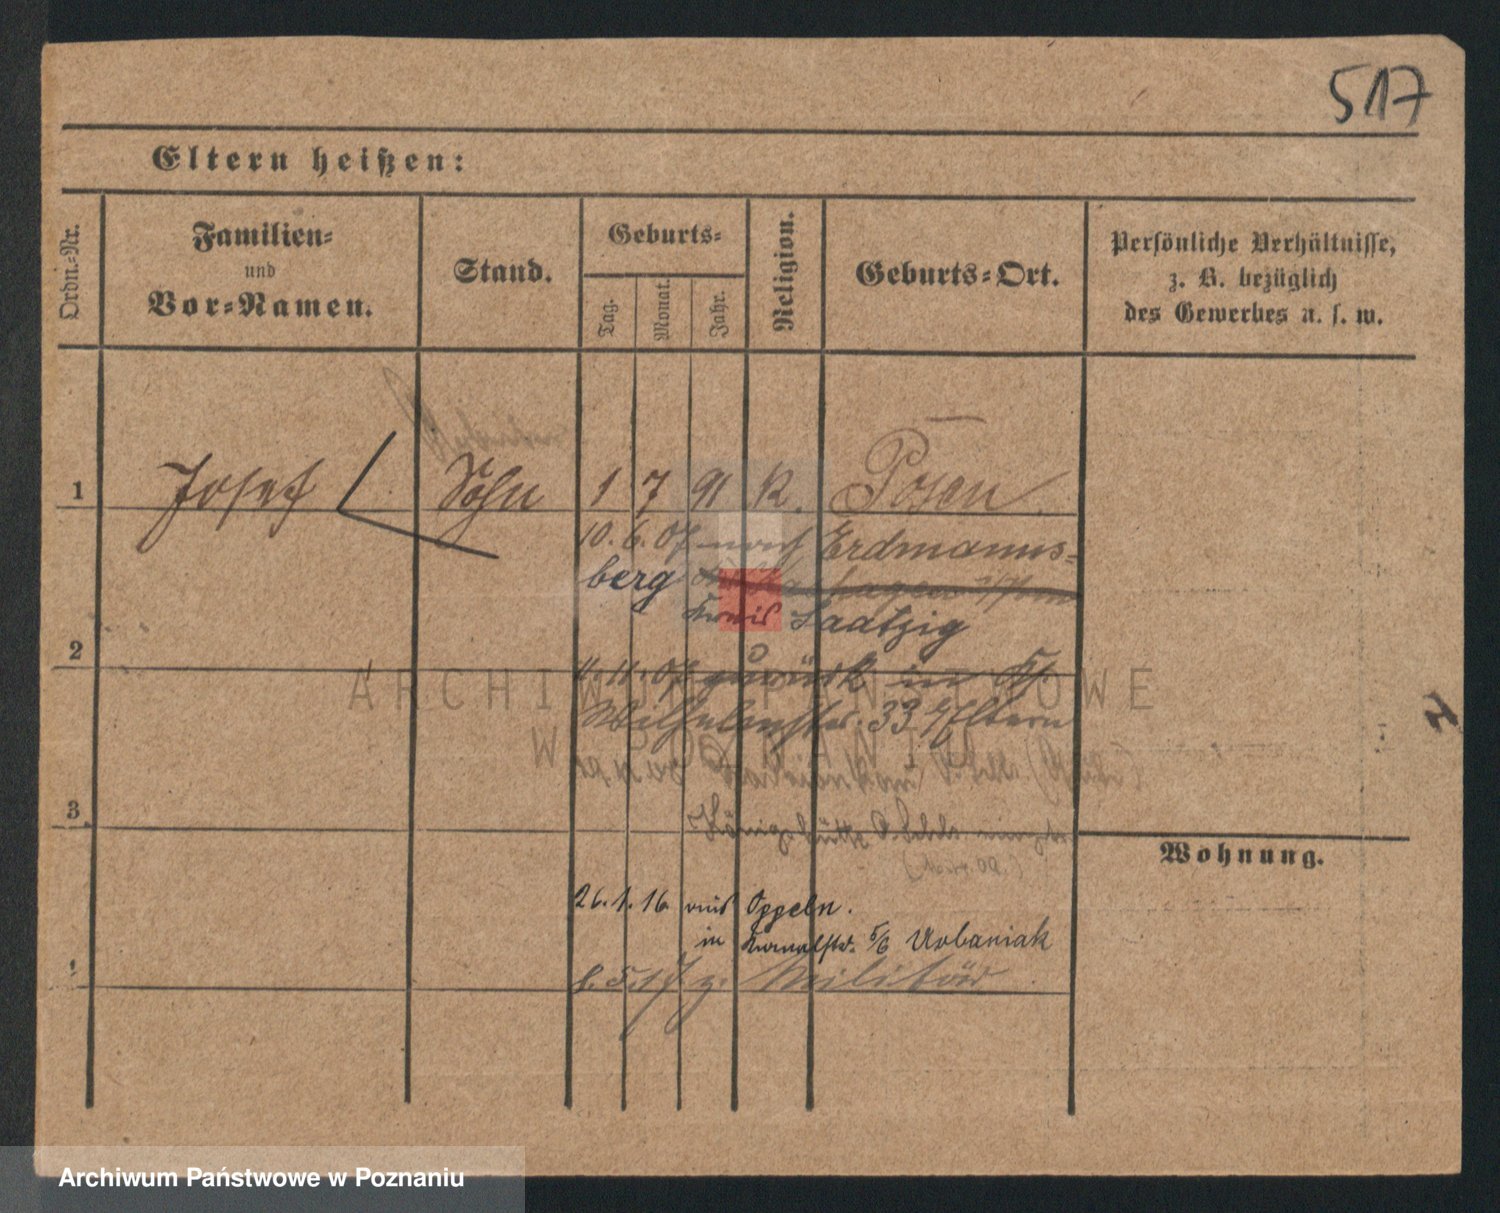 517
Eltern heißen:
Ordn.-Nr.
Familien-
und
Vor-Namen.
Stand.
Geburts-
Tag.
Monat.
Jahr.
Religion.
Geburts-Ort.
Persönliche Verhältnisse,
z. B. bezüglich
des Gewerbes u. s. w.
1 Josef Sohn 1 7 91 K. Posen
10. 6. 07 nach Erdmanns-
berg
Kreis Saatzig
2
11. 11. 07 zurück in
Wilhelmstr. 33 Eltern
3
Wohnung.
26. 1. 16 aus Oppeln.
in Kanalstr. 5/6 Urbaniak
z. Militär
ARCHIWUM PAŃSTWOWE
W POZNANIU
Archiwum Państwowe w Poznaniu